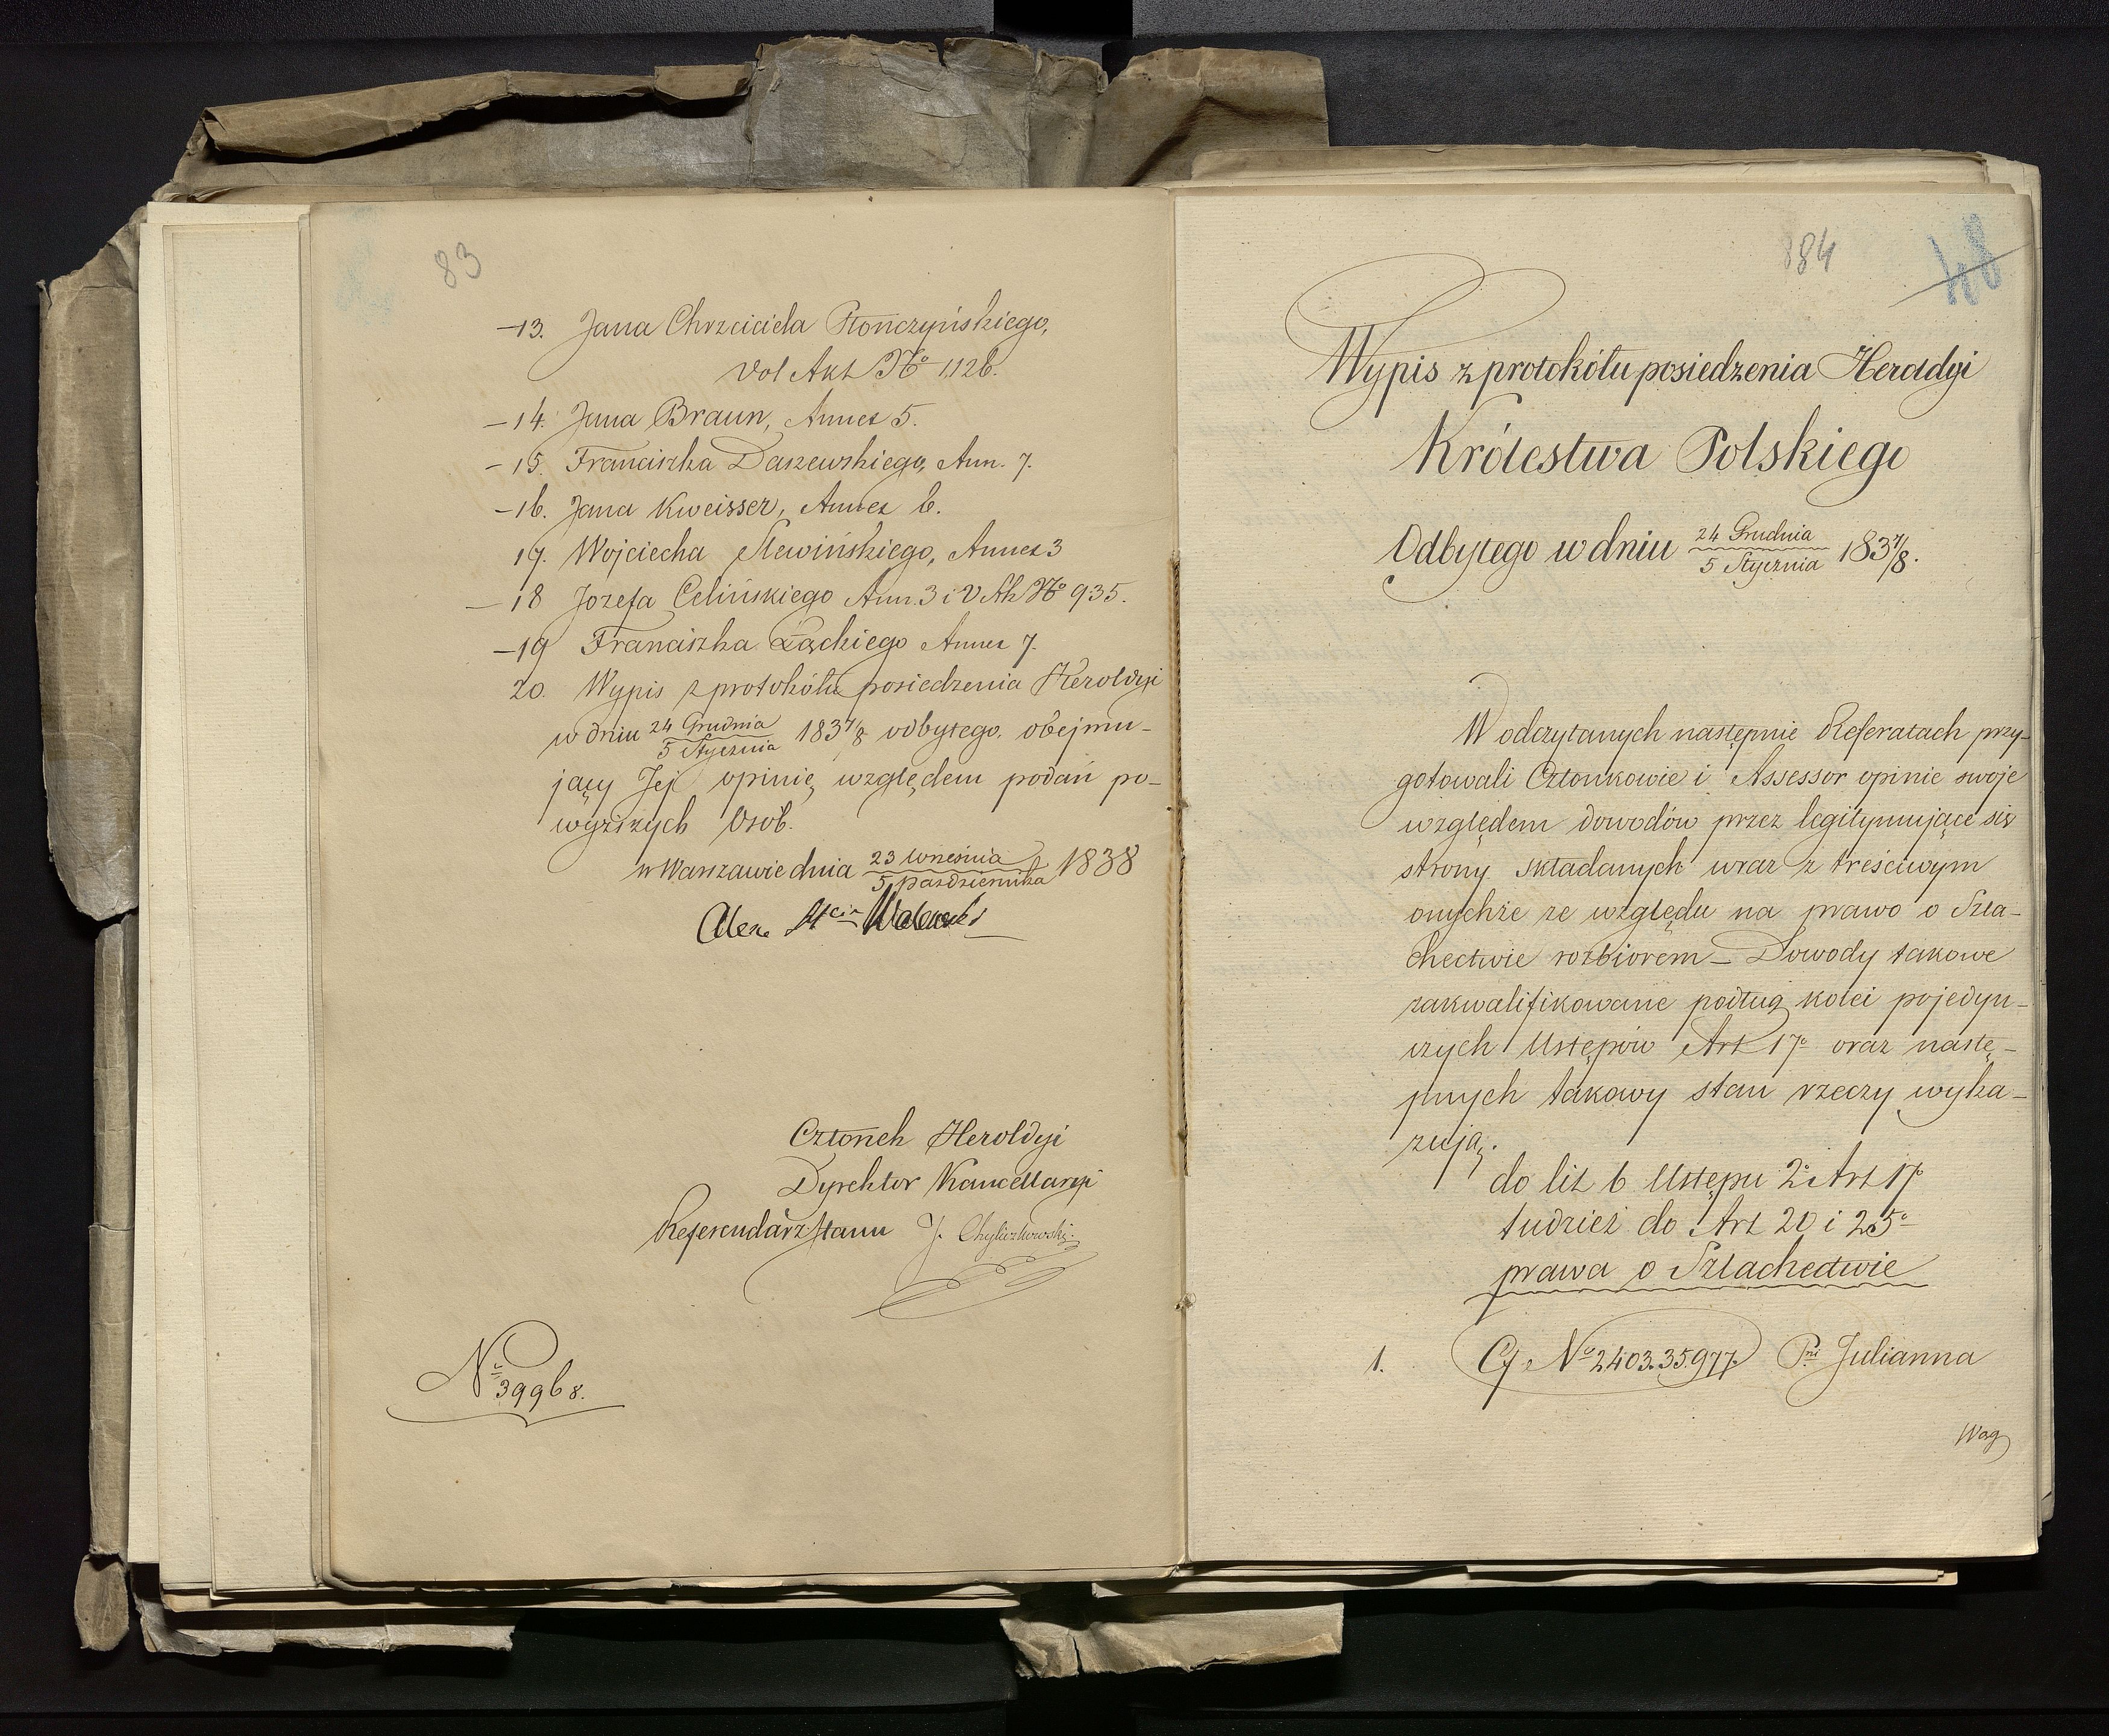 83
—13. Jana Chrzciciela Płończyńskiego,
Vol Akt No 1126.
—14. Jana Braun, Annex 5.
—15. Franciszka Daszewskiego, Ann. 7.
—16. Jana Kweisser, Annex 6.
17. Wojciecha Slewińskiego, Annex 3
—18 Jozefa Celińskiego Ann. 3 i V Ak No 935.
—19 Franciszka Łąckiego Annex 7.
20. Wypis z protokółu posiedzenia Heroldyi
w dniu 24 Grudnia / 5 Stycznia 1837/8 odbytego, obejmu-
jący Jej opinię względem podań po-
wyższych Osób.
w Warszawie dnia 23 Września / 5 Października 1838
Alex Walewski
Członek Heroldyi
Dyrektor Kancellaryi
Referendarz Stanu J. Chyliczkowski.
No 39968.
84
48
Wypis z protokółu posiedzenia Heroldyi
Królestwa Polskiego
Odbytego w dniu 24 Grudnia / 5 Stycznia 1837/8.
W odczytanych następnie Referatach przy-
gotowali Członkowie i Assessor opinie swoje
względem dowodów przez legitymujące się
strony składanych wraz z treściwym
onychże ze względu na prawo o Szla-
chectwie rozbiorem — Dowody takowe
zakwalifikowane podług kolei pojedyn-
czych Ustępów Art 17o oraz nastę-
pnych takowy stan rzeczy wyka-
zują.
do lit b Ustępu 2o Art 17o
tudzież do Art 20 i 25o
prawa o Szlachectwie
1. No 2403.35.977. Pni Julianna
Wag